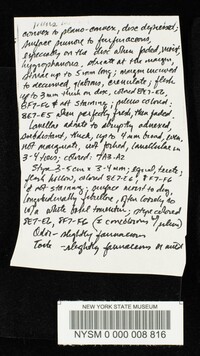 convex to plano-convex, disc depressed;
surface minute to furfuraceous,
especially on the disc when faded, moist,
hygrophanous, striate at the margin,
striae up to 5 mm long; margin incurved
to decurved, glabrous, crenulate; flesh
up to 3 mm thick on disc, colored 8E7-E6,
8F7-F6 & not staining; pileus colored:
8E7-E5 when perfectly fresh, then faded
Lamellae adnate to abruptly adnexed,
subdistant, thick, up to 4 mm broad, even
not marginate, not forked, lamellulae in
3-4 tiers; colored: 7A3-A2
Stipe 3-5 cm x 3-4 mm; equal, terete,
flesh hollow, colored 8E7-E6, 8F7-F6
& not staining; surface moist to dry,
longitudinally fibrillose, often loosely so
w/a white basal tomentum; stipe colored
8E7-E6, 8F7-F6 (& concolorous w/ pileus)
Odor - slightly farinaceous
Taste - slightly farinaceous or mild
NEW YORK STATE MUSEUM
NYSM 0 000 008 816